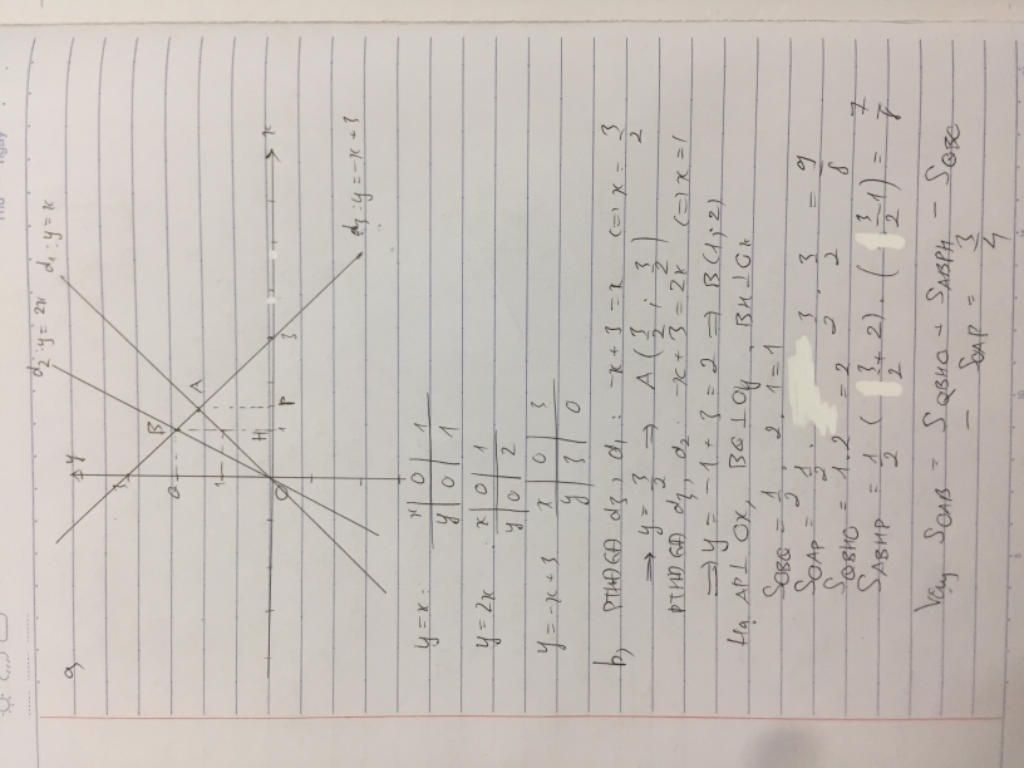 a,
d2: y = 2x
d1: y = x
y
3
B
A
2
1
O
H
1
P
3
x
d3: y = -x + 3
y = x:
x | 0 | 1
y | 0 | 1
y = 2x
x | 0 | 1
y | 0 | 2
y = -x + 3
x | 0 | 3
y | 3 | 0
b, PTHĐGĐ d3, d1: -x + 3 = x (=) x = 3/2
=> y = 3/2 => A (3/2 ; 3/2)
PTHĐGĐ d3, d2: -x + 3 = 2x (=) x = 1
=> y = -1 + 3 = 2 => B (1; 2)
Hạ AP ⊥ Ox, BQ ⊥ Oy, BH ⊥ Ox
SOBQ = 1/2 . 2 . 1 = 1
SOAP = 1/2 . 3/2 . 3/2 = 9/8
SQBHO = 1.2 = 2
SABHP = 1/2 (3/2 + 2) . (3/2 - 1) = 7/8
Vậy SOAB = SQBHO + SABPH - SOBQ
- SOAP = 3/4